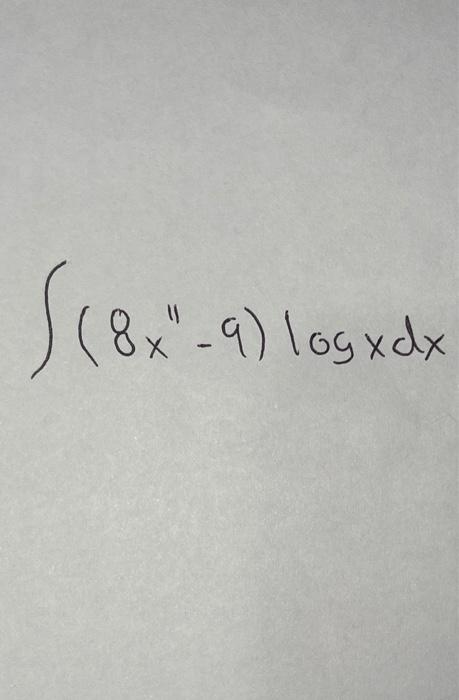 ∫(8x¹¹-9) log x dx